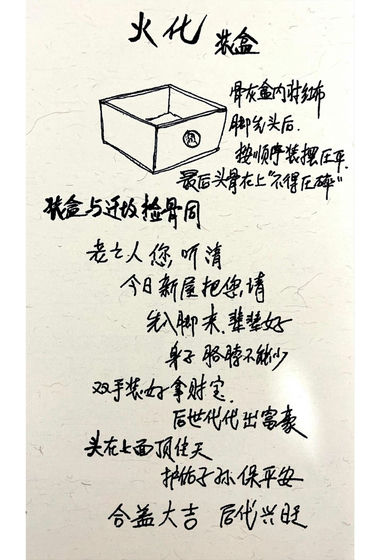 火化 装盒
骨灰盒内附红布
脚先头后.
按顺序装摆压平.
最后头骨在上"不得压碎"
装盒与迁坟捡骨同
老亡人您,听清
今日新屋把您,请
先入脚来.辈辈好
身子胳脖不能少
双手装好拿财宝.
后世代代出富豪
头在上面顶住天
护佑子孙保平安
合盖大吉 后代兴旺